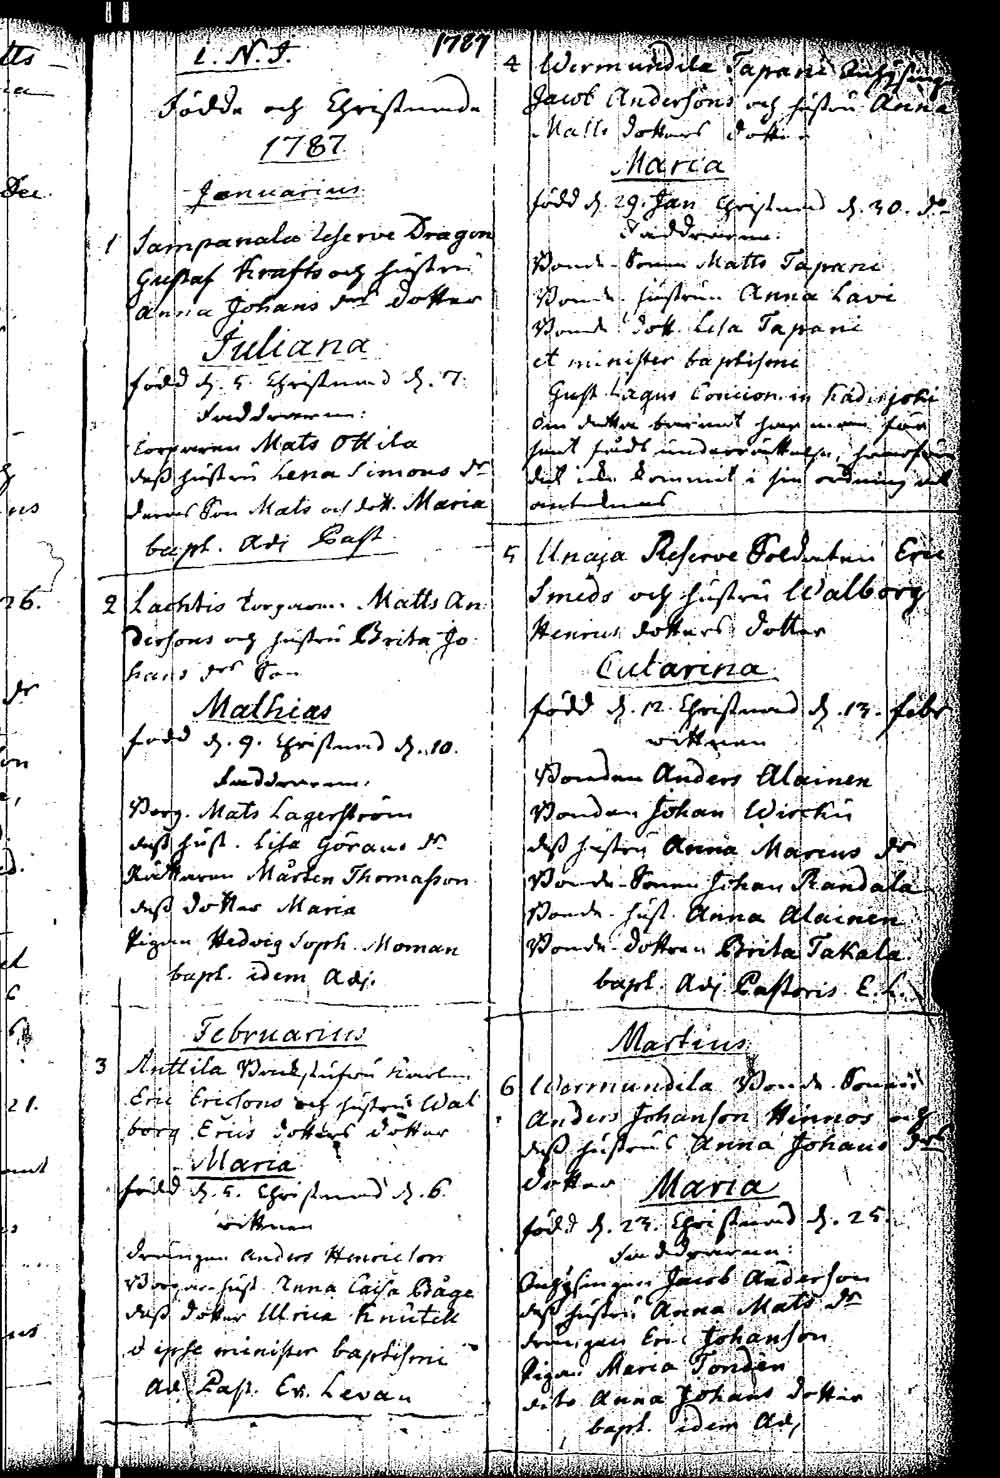 1787
I. N. J.
Födde och Christnade
1787
Januarius
1 Sampanala Reserve Dragon
Gustaf Krafts och hustru
Anna Johans drs Dotter
Juliana
född d. 5. Christnad d. 7.
Faddrarne:
Torparen Mats Ottila
dess hustru Lena Simons dr
deras Son Mats och dott. Maria
bapt. Adj Past.
2 Lachtis Torparen Matts An
dersons och hustru Brita Jo
hans drs Son
Mathias
född d. 9. Christnad d. 10.
Faddrarne:
Borg. Mats Lagerström
dess hust. Lisa Görans dr
Rättaren Mårten Thomasson
dess dotter Maria
Pigan Hedvig Soph. Moman
bapt. idem Adj.
Februarius
3 Anttila
Eric Ericsons och hustru Wal
borg Erics dotters dotter
Maria
född d. 5. Christnad d. 6.
wittnen
drängen Anders Henricson
Borgarehust. Anna Caisa Båge
dess dotter Ulrica Knutell
et ipse minister baptismi
Adj. Past. Er. Levan
4 Wermundila Tapani
Jacob Andersons och hustru Anna
Matts dotters dotter
Maria
född d. 29. Jan Christnad d. 30. do
Faddrarne:
Bonde-Sonen Matts Tapani
Bonde-hustrun Anna Lavi
Bonde dott. Lisa Tapani
et minister baptismi
Gust. Lagus Concion. in
Om detta barnet har man för
sent fådt underrättelse, hvarföre
det icke kommit i sin ordning at
antecknas
5 Unaja Reserve Soldaten Eric
Smeds och hustru Walborg
Henrics dotters dotter
Catarina
född d. 12. Christnad d. 13. febr
wittnen
Bonden Anders Alainen
Bonden Johan Wirckii
dess hustru Anna Marcus dr
Bonde-Sonen Johan Randala
Bonde-hust. Anna Alainen
Bonde-dottren Brita Takala
bapt. Adj Pastoris E. L.
Martius
6 Wermundila Bonde-Sonens
Anders Johanson Hinnos och
dess hustrus Anna Johans drs
dotter Maria
född d. 23. Christnad d. 25.
Faddrarne:
Inhysingen Jacob Anderson
dess hustru Anna Mats dr
drängen Eric Johanson
Pigan Maria Tonden
dito Anna Johans dotter
bapt. idem Adj